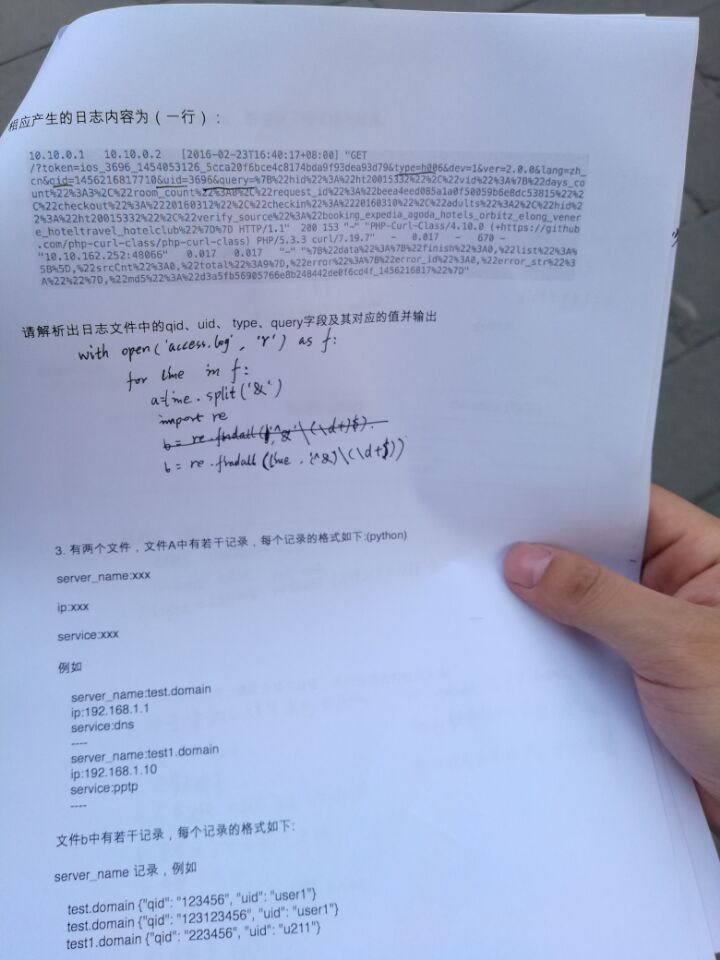 相应产生的日志内容为（一行）:
10.10.0.1 10.10.0.2 [2016-02-23T16:40:17+08:00] "GET
/?token=ios_3696_1454053126_5cca20f6bce4c8174bda9f93dea93d79&type=h006&dev=1&ver=2.0.0&lang=zh_
cn&qid=1456216817710&uid=3696&query=%7B%22hid%22%3A%22ht20015332%22%2C%22vid%22%3A%7B%22days_co
unt%22%3A3%2C%22room_count%22%3A0%2C%22request_id%22%3A%22beea4eed085a1a0f50059b6e8dc53815%22%2
C%22checkout%22%3A%2220160312%22%2C%22checkin%22%3A%2220160310%22%2C%22adults%22%3A2%2C%22hid%2
2%3A%22ht20015332%22%2C%22verify_source%22%3A%22booking_expedia_agoda_hotels_orbitz_elong_vener
e_hoteltravel_hotelclub%22%7D%7D HTTP/1.1" 200 153 "-" "PHP-Curl-Class/4.10.0 (+https://github
.com/php-curl-class/php-curl-class) PHP/5.3.3 curl/7.19.7" - 0.017 - 670 -
"10.10.162.252:48066" 0.017 0.017 "-" "%7B%22data%22%3A%7B%22finish%22%3A0,%22list%22%3A%
5B%5D,%22srcCnt%22%3A0,%22total%22%3A9%7D,%22error%22%3A%7B%22error_id%22%3A0,%22error_str%22%3
A%22%22%7D,%22md5%22%3A%22d3a5fb56905766e8b248442de0f6cd4f_1456216817%22%7D"
请解析出日志文件中的qid、uid、 type、query字段及其对应的值并输出
with open('access.log', 'r') as f:
for line in f:
a=line.split('&')
import re
b = re.findall
b = re.findall(line, '^&)\(\d+$))
3. 有两个文件，文件A中有若干记录，每个记录的格式如下:(python)
server_name:xxx
ip:xxx
service:xxx
例如
server_name:test.domain
ip:192.168.1.1
service:dns
----
server_name:test1.domain
ip:192.168.1.10
service:pptp
----
文件b中有若干记录，每个记录的格式如下:
server_name 记录，例如
test.domain {"qid": "123456", "uid": "user1"}
test.domain {"qid": "123123456", "uid": "user1"}
test1.domain {"qid": "223456", "uid": "u211"}